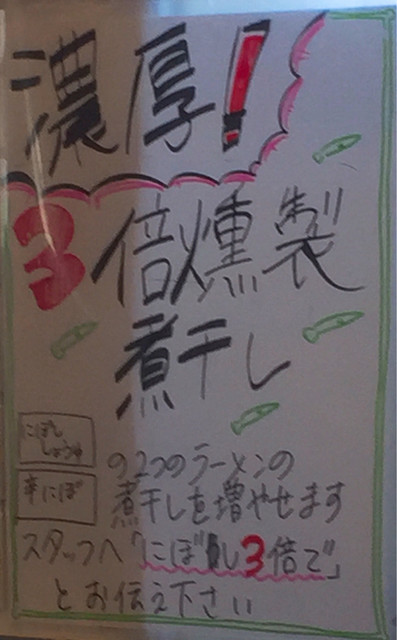 濃厚!
3倍燻製
煮干し
にぼし
しょうゆ
辛にぼ
の2つのラーメンの
煮干しを増やせます
スタッフへ「にぼし3倍で」
とお伝え下さい